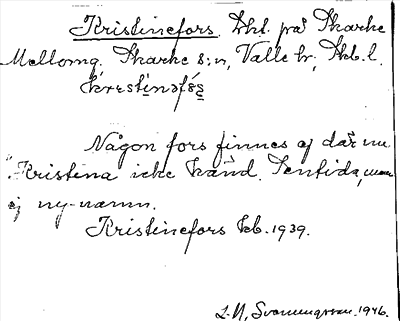 Kristinefors. Lht. på Skarke
Mellomg. Skarke s:n, Valle hr, Skb. l.
Någon fors finnes ej där nu
Kristina icke känd. Sentida, men
ej ny-namn.
Kristinefors kb. 1939.
L. N. Svanungsson. 1946.